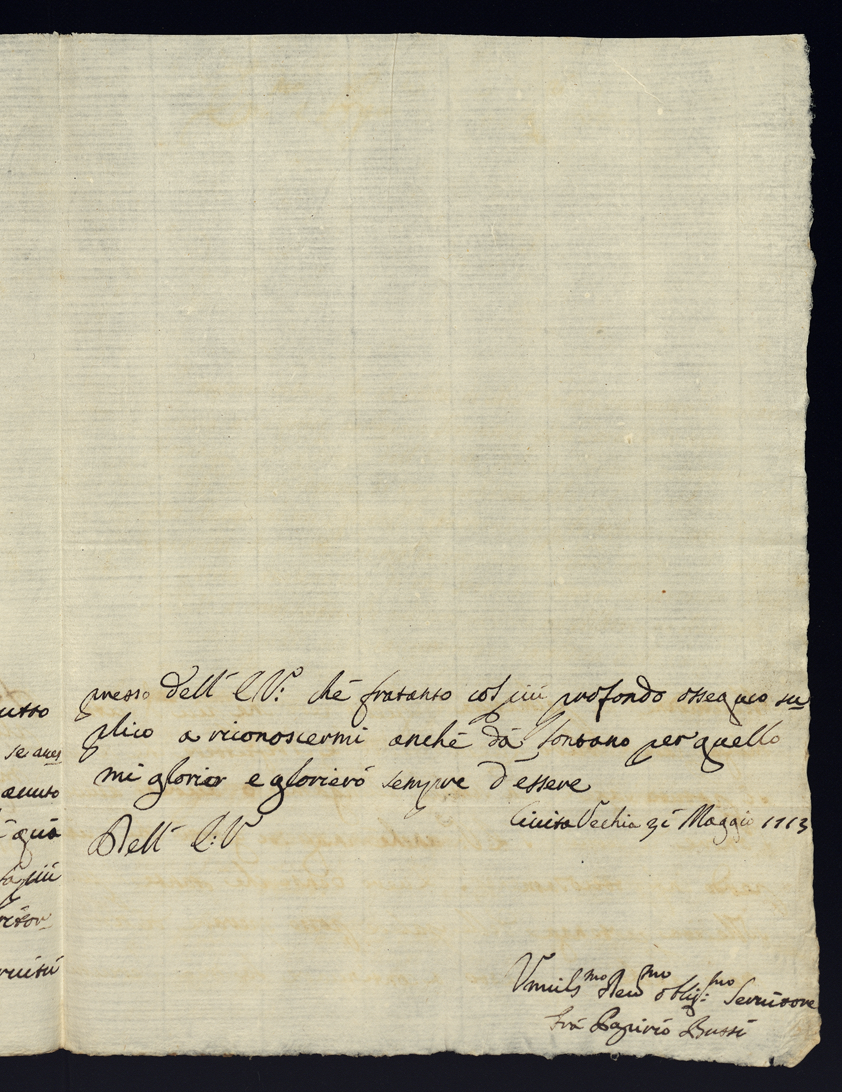 utto
se aues
auuto
e quà
più
ritor
ruitù
presso dell' E.V: chè fratanto col più profondo ossequio su=
plico a riconoscermi anchè dà lontano per quello
mi glorier e glorierò sempre d'essere
Dell' E:V
Ciuita Vechia 31 Maggio 1713
Vmils.mo Deu.mo oblig:mo Seruitore
frà Papirio Bussi